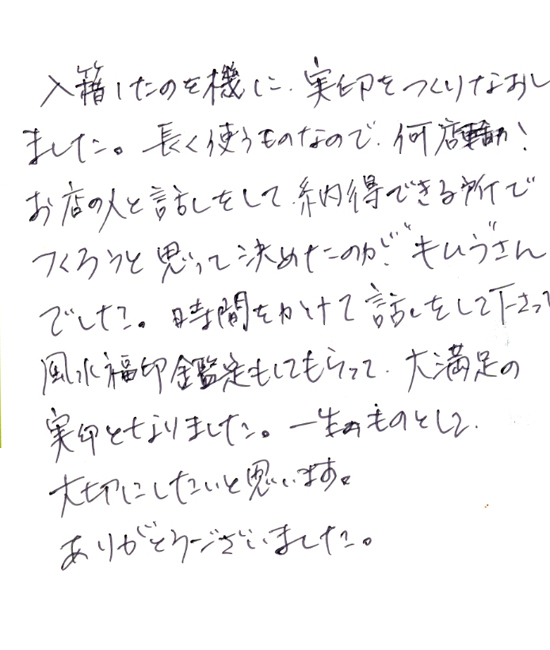 入籍したのを機に、実印をつくりなおし
ました。長く使うものなので、何店舗か
お店の人と話しをして納得できる所で
つくろうと思って決めたのが、“きひつ”さん
でした。時間をかけて話しをして下さって
風水福印鑑定もしてもらって、大満足の
実印となりました。一生のものとして、
大切にしたいと思います。
ありがとうございました。